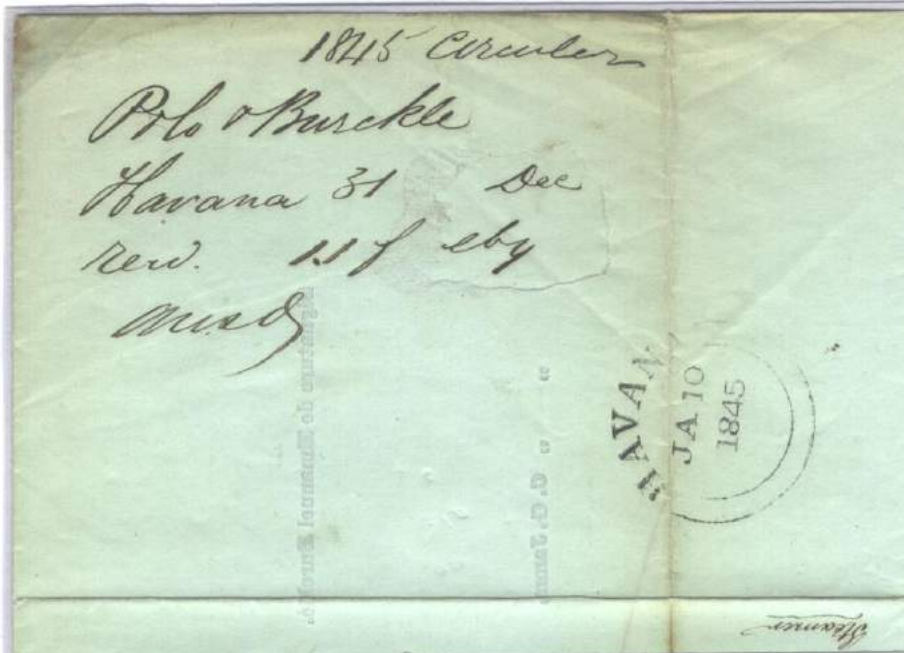 1845 Circular
Polo & Burckle
Havana 31 Dec
recd. 11 f eby
ansd
HAVAN
JA 10
1845
Steamer